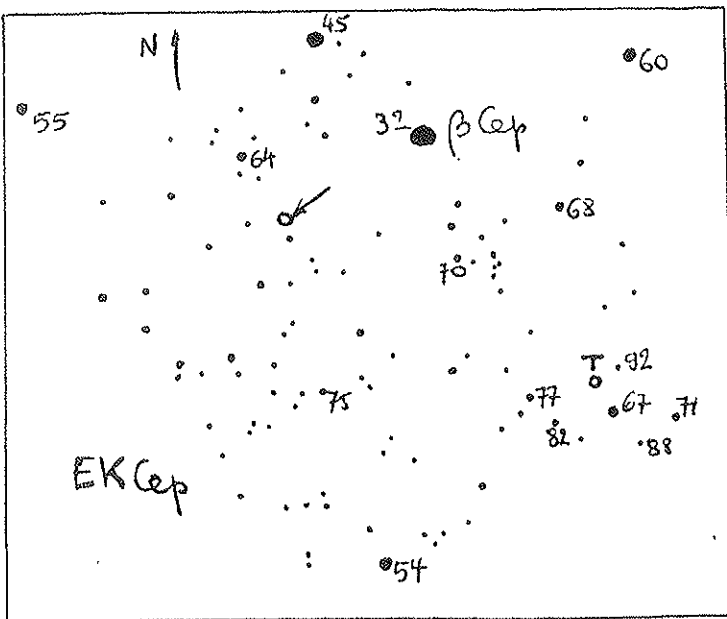 45
N
60
55
32 β Cep
64
68
70
T 92
75
77
67
71
82
88
EK Cep
54